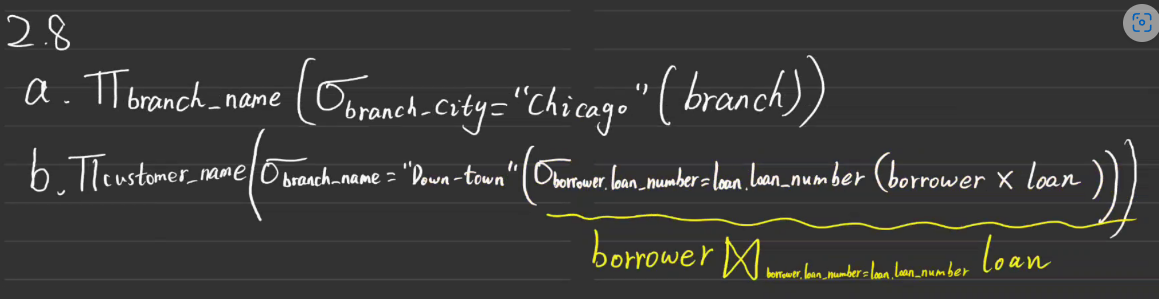 2.8
a. Π branch_name (σ branch_city="Chicago" (branch))
b. Π customer_name (σ branch_name="Down-town" (σ borrower.loan_number=loan.loan_number (borrower × loan)))
borrower ⋈ borrower.loan_number=loan.loan_number loan